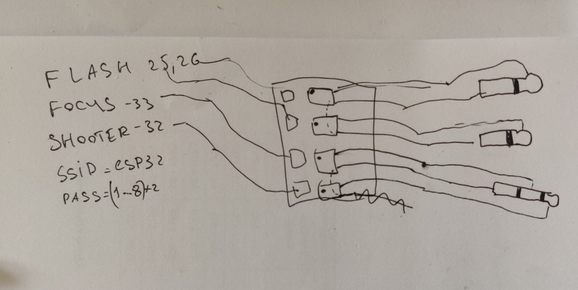 FLASH 25,26
FOCUS -33
SHOOTER-32
SSiD = eSP32
PASS=(1-8)+2